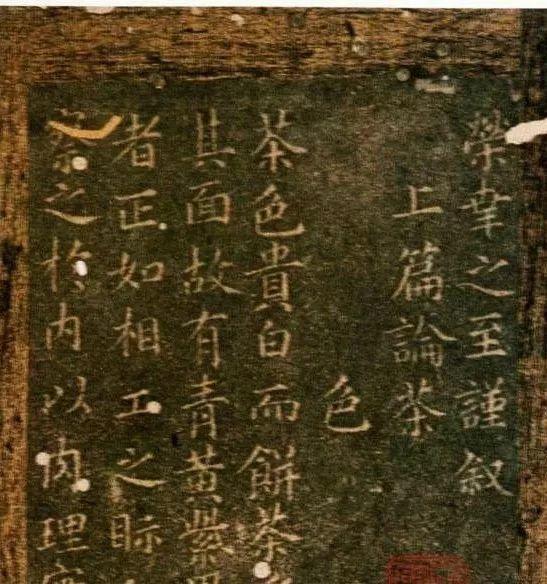 榮幸之至謹叙
上篇論茶
色
茶色貴白而餅茶
其面故有青黃紫
者正如相工之眎
察之於内以肉理